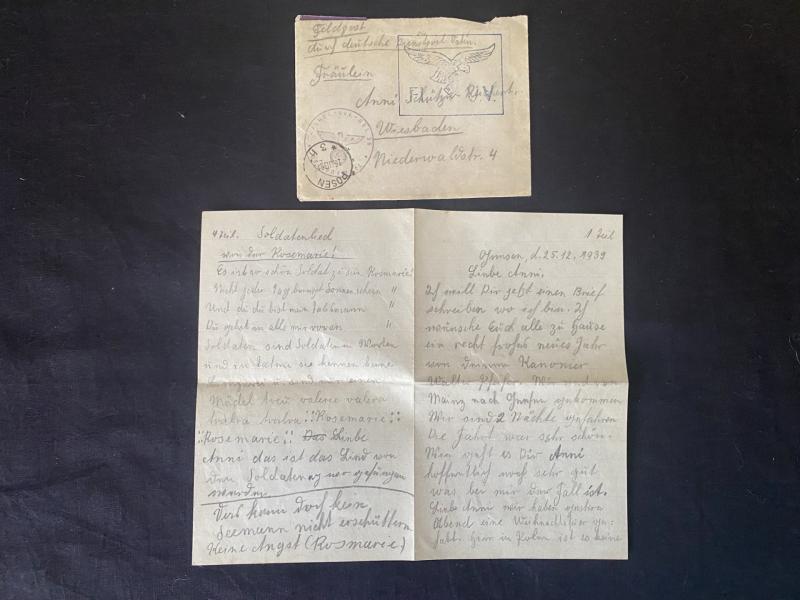 Feldpost
durch deutsche Dienstpost Osten.
Fräulein
Anni
Wiesbaden
Niederwaldstr. 4
POSEN
4 Teil. Soldatenlied
von der Rosemarie!
Es ist so schön Soldat zu sein Rosemarie!
Nicht jeder Tag bringt Sonnenschein "
Und du du bist mein Talismann "
Du gehst in alle mir voran "
Soldaten sind Soldaten in Worten
und in Taten sie kennen keine
und einen
Mädel treu valerie valera
Rosemarie!!
!!Rosemarie!! Das Liebe
Anni das ist das Lied von
den Soldaten
werden.
Das kann doch kein
Seemann nicht erschüttern
Keine Angst (Rosmarie)
1 Teil
Gnesen, d. 25.12.1939
Liebe Anni.
Ich will Dir jetzt einen Brief
schreiben wo ich bin. Ich
wünsche Euch alle zu Hause
ein recht frohes neues Jahr
von Kanonier
Walter Wir sind von
Mainz nach Gnesen gekommen
Wir sind 2 Nächte gefahren
Die Fahrt war sehr schön.
Wie geht es Dir Anni
hoffentlich noch sehr gut
was bei mir der Fall ist.
Liebe Anni wir haben gestern
Abend eine Weihnachtsfeier ge-
habt. Hier in Polen ist es keine